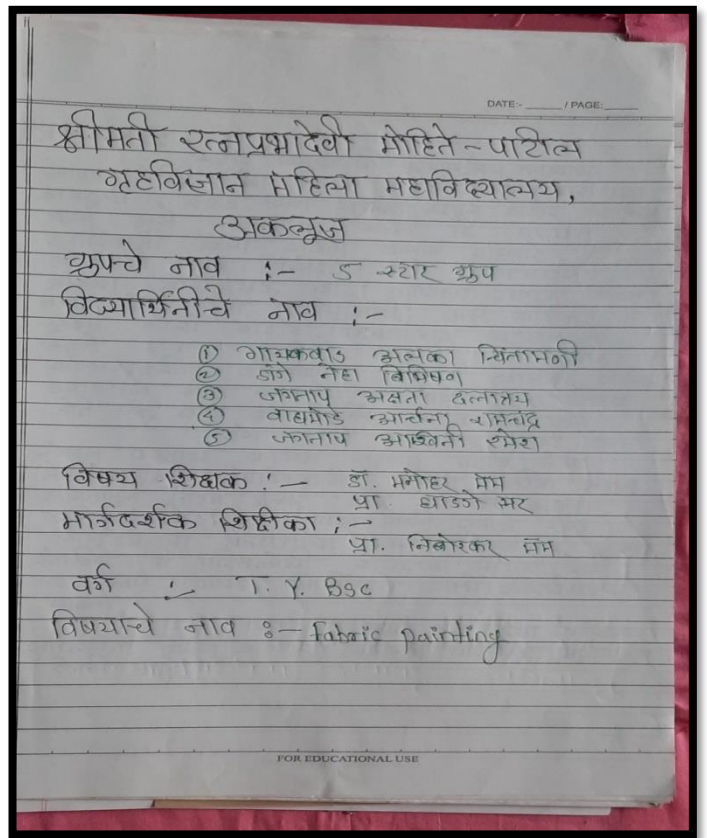 DATE:- ______ / PAGE:______
श्रीमती रत्नप्रभादेवी मोहिते-पाटील
गृहविज्ञान महिला महाविद्यालय,
अकलूज
ग्रुपचे नाव :- 5 स्टार ग्रुप
विद्यार्थिनीचे नाव :-
① गायकवाड अलका चिंतामणी
② डांगे नेहा बिभिषण
③ जगताप अक्षता दत्तात्रय
④ वाघमोडे आर्चना रामचंद्र
⑤ जगताप आश्विनी रमेश
विषय शिक्षक :- डॉ. मनोहर मॅम
प्रा. धाडगे सर
मार्गदर्शक शिक्षीका :-
प्रा. मॅम
वर्ग :- T. Y. BSC
विषयाचे नाव :- fabric painting
FOR EDUCATIONAL USE